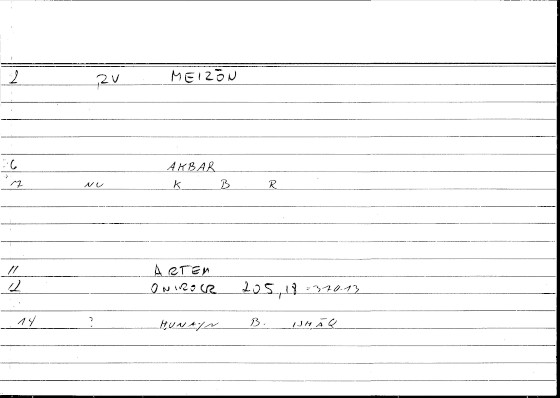 2 RV MEIZŌN
6 AKBAR
7 NU K B R
11 ARTEM
12 ONIROCR 205,19 = 320.13
14 ? HUNAYN B. ISHĀQ